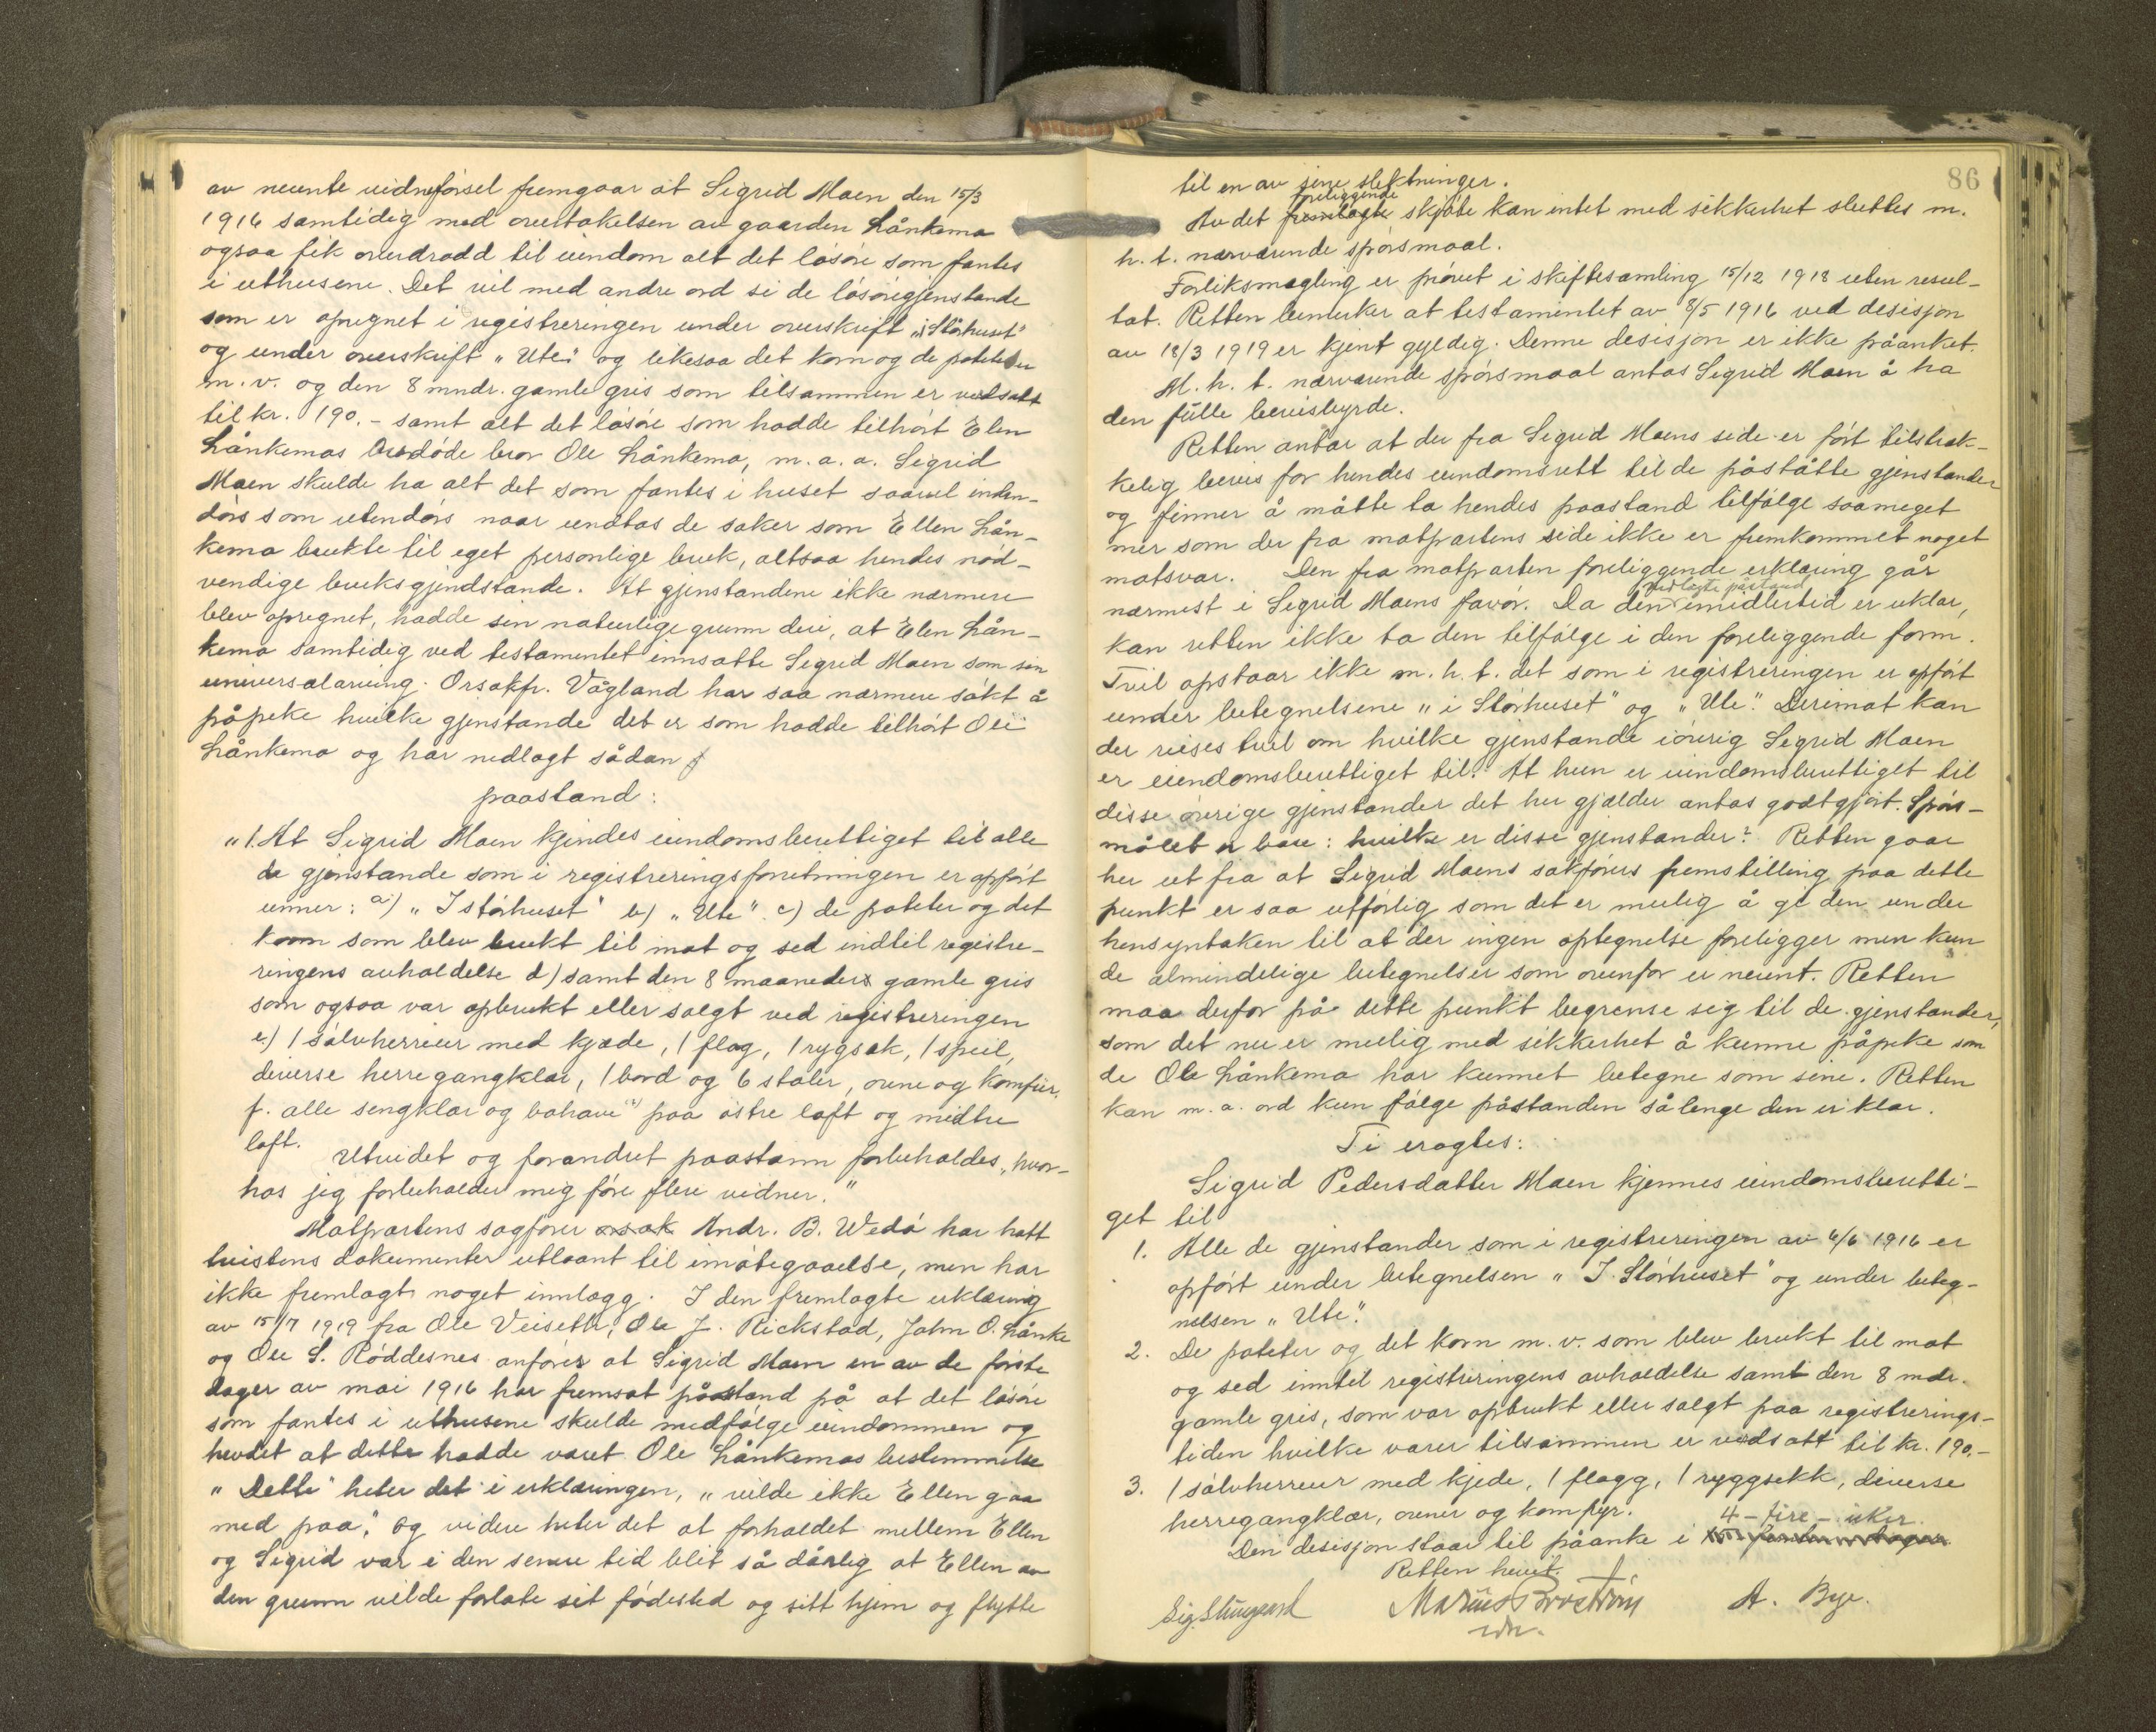 av nevnte vidneførsel fremgaar at Sigrid Moen den 15/3
1916 samtidig med overtakelsen av gaarden Lånkemo
ogsaa fik overdradd til eiendom alt det løsøre som fantes
i uthusene. Det vil med andre ord si de løsøregjenstande
som er opregnet i registreringen under overskrift „i Størhuset"
og under overskrift „Ute" og likesaa det korn og de poteter
m.v. og den 8 mndr. gamle gris som tilsammen er verdsatt
til kr. 190.- samt alt det løsøre som hadde tilhørt Elen
Lånkemos avdøde bror Ole Lånkemo, m.a.o. Sigrid
Moen skulde ha alt det som fantes i huset saavel inden-
dørs som utendørs naar undtas de saker som Ellen Lån-
kemo brukte til eget personlige bruk, altsaa hendes nød-
vendige bruksgjendstande. At gjenstandene ikke nærmere
blev opregnet, hadde sin naturlige grunn deri, at Elen Lån-
kemo samtidig ved testamentet innsatte Sigrid Moen som sin
universalarving. Orsakfr. Vågland har saa nærmere søkt å
påpeke hvilke gjenstande det er som hadde tilhørt Ole
Lånkemo og har nedlagt sådan
paastand:
„1. At Sigrid Moen kjendes eiendomsberettiget til alle
de gjenstande som i registreringsforretningen er opført
unner: a) „I størhuset" b) „Ute" c) de poteter og det
korn som blev brukt til mat og sed indtil registre-
ringens avholdelse d) samt den 8 maaneders gamle gris
som ogsaa var opbrukt eller solgt ved registreringen
e) 1 sølvherreur med kjæde, 1 flag, 1 rygsæk, 1 speil,
diverse herregangklær, 1 bord og 6 stoler, ovne og komfur,
f. alle sengklær og bohave paa østre loft og midtre
loft. Utvidet og forandret paastann forbeholdes, hvor-
hos jeg forbeholder mig føre flere vidner."
Motpartens sagfører Andr. B. Wedø har hatt
tvistens dokumenter utlaant til imøtegaaelse, men har
ikke fremlagt noget innlægg. I den fremlagte erklæring
av 15/7 1919 fra Ole Veiseth, Ole J. Rickstad, John O. Lånke
og Ole S. Røddesnes anføres at Sigrid Moen en av de første
dager av mai 1916 har fremsat påstand på at det løsøre
som fantes i uthusene skulde medfølge eiendommen og
hevdet at dette hadde været Ole Lånkemos bestemmelse
„Dette" heter det i erklæringen, „vilde ikke Ellen gaa
med paa", og videre heter det at forholdet mellem Ellen
og Sigrid var i den senere tid blit så dårlig at Ellen av
den grunn vilde forlate sit fødested og sitt hjem og flytte
86
til en av sine slektninger.
Av det foreliggende skjøte kan intet med sikkerhet sluttes m.
h.t. nærværende spørsmaal.
Forliksmegling er prøvet i skiftesamling 15/12 1918 uten resul-
tat. Retten bemerker at testamentet av 8/5 1916 ved desisjon
av 18/3 1919 er kjent gyldig. Denne desisjon er ikke påanket.
M.h.t. nærværende spørsmaal antas Sigrid Moen å ha
den fulle bevisbyrde.
Retten antar at der fra Sigrid Moens side er ført tilstrek-
kelig bevis for hendes eiendomsrett til de påståtte gjenstander
og finner å måtte ta hendes paastand tilfølge saameget
mer som der fra motpartens side ikke er fremkommet noget
motsvar. Den fra motparten foreliggende erklæring går
nærmest i Sigrid Moens favør. Da den nedlagte påstand imidlertid er uklar,
kan retten ikke ta den tilfølge i den foreliggende form.
Tvil opstaar ikke m.h.t. det som i registreringen er opført
under betegnelsene „i Størhuset" og „Ute". Derimot kan
der reises tvil om hvilke gjenstande iøvrig Sigrid Moen
er eiendomsberettiget til. At hun er eiendomsberettiget til
disse øvrige gjenstander det her gjælder antas godtgjort. Spørs-
målet er bare: hvilke er disse gjenstander? Retten gaar
her ut fra at Sigrid Moens sakførers fremstilling paa dette
punkt er saa utførlig som det er mulig å gi den under
hensyntaken til at der ingen optegnelse foreligger men kun
de almindelige betegnelser som ovenfor er nevnt. Retten
maa derfor på dette punkt begrense sig til de gjenstander,
som det nu er mulig med sikkerhet å kunne påpeke som
de Ole Lånkemo har kunnet betegne som sine. Retten
kan m.a. ord kun følge påstanden så lenge den er klar.
Ti eragtes:
Sigrid Pedersdatter Moen kjennes eiendomsberetti-
get til
1. Alle de gjenstander som i registreringen av 6/6 1916 er
opført under betegnelsen „I Størhuset" og under beteg-
nelsen „Ute".
2. De poteter og det korn m.v. som blev brukt til mat
og sed inntil registreringens avholdelse samt den 8 mdr.
gamle gris, som var opbrukt eller solgt paa registrerings-
tiden hvilke varer tilsammen er verdsatt til kr. 190.-
3. 1 sølvherreur med kjede, 1 flagg, 1 ryggsekk, diverse
herregangklær, ovner og komfyr.
4 - fire - uker.
Den desisjon staar til påanke i
Retten hevet.
Marius Brostrøm
A. Bye.